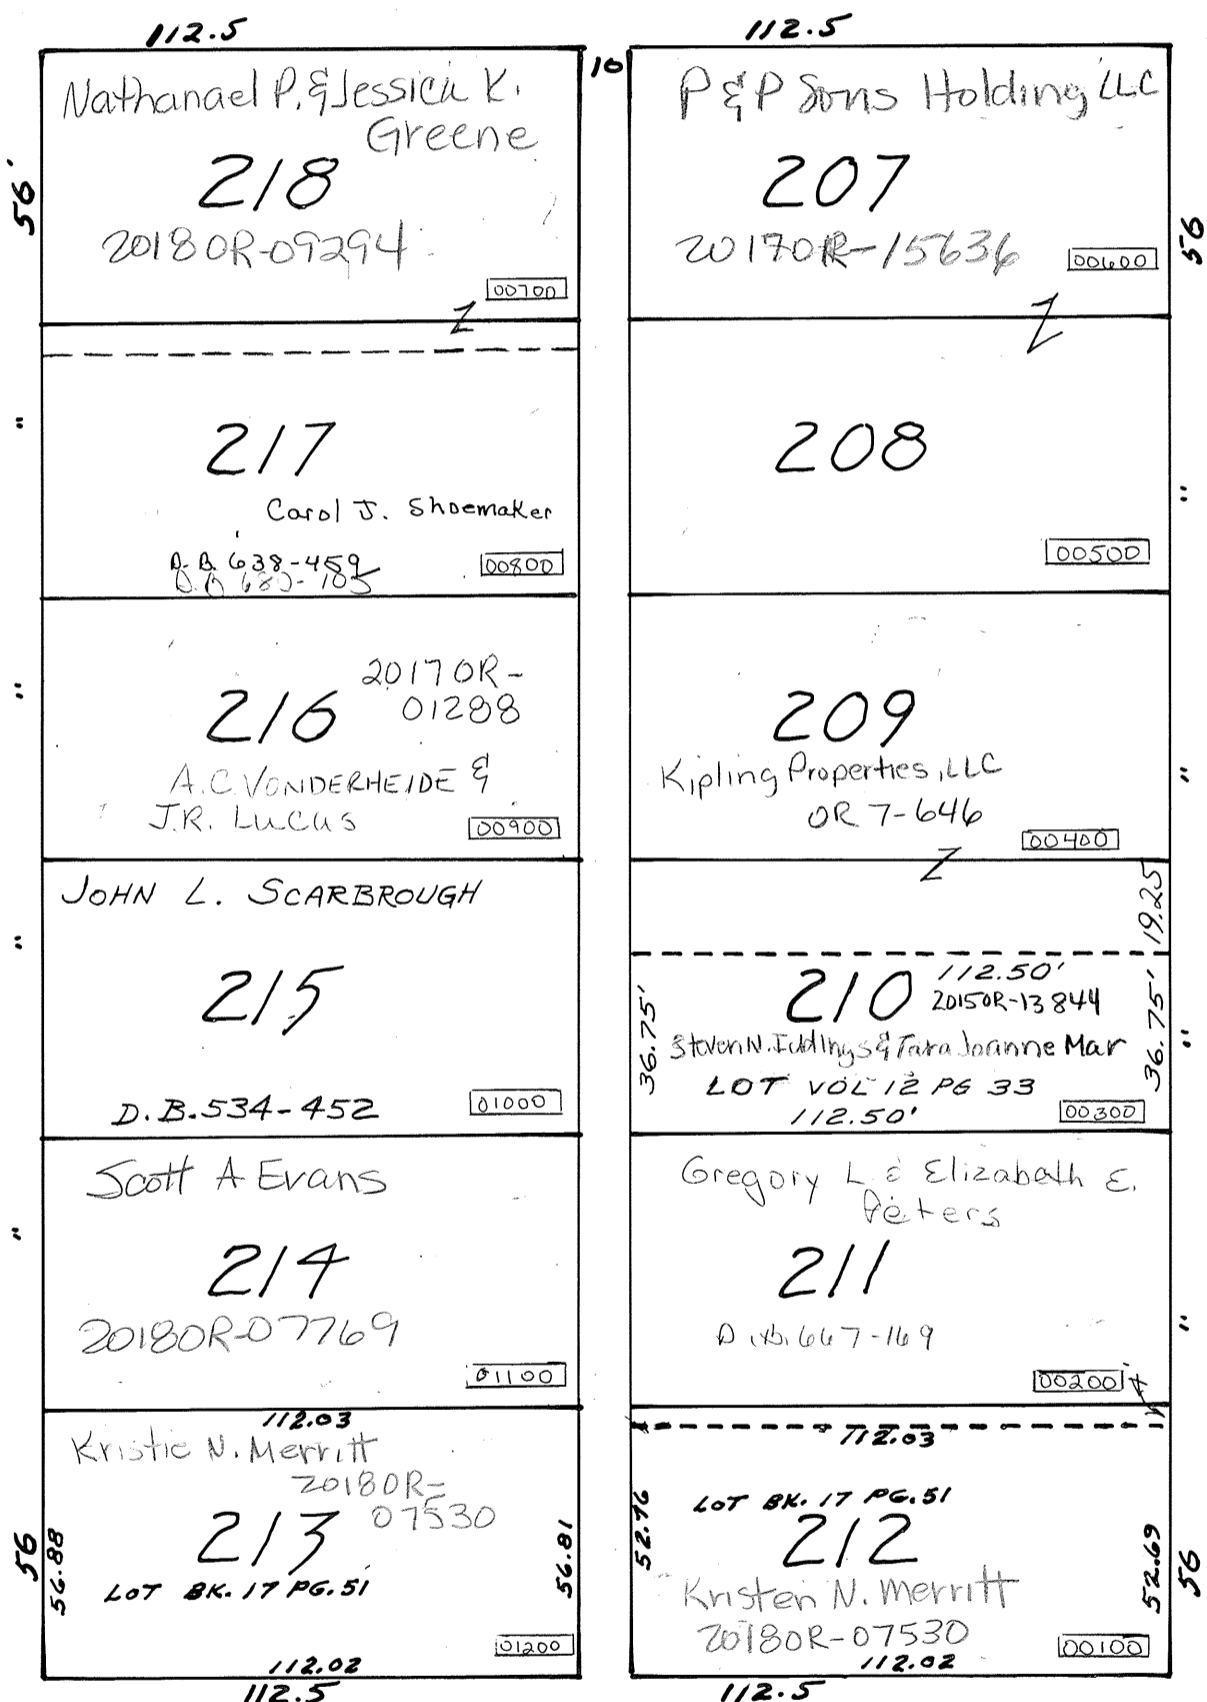 112.5
Nathanael P. & Jessica K.
Greene
56'
218
2018OR-09294
00700
"
217
Carol J. Shoemaker
D.B. 638-459
00800
"
216
2017OR-
01288
A.C. VONDERHEIDE &
J.R. LUCAS
00900
"
JOHN L. SCARBROUGH
215
D.B. 534-452
01000
"
Scott A Evans
214
2018OR-07769
01100
112.03
Kristie N. Merritt
2018OR-
07530
56
56.88
213
56.81
LOT BK. 17 PG. 51
01200
112.02
112.5
10
112.5
P & P Sons Holding LLC
207
2017OR-15636
00600
56
208
00500
"
209
Kipling Properties, LLC
OR 7-646
00400
"
19.25
210
112.50'
2015OR-13844
36.75'
36.75'
"
Steven N. Iddings & Tara Joanne Mar
LOT VOL 12 PG 33
112.50'
00300
Gregory L & Elizabeth E.
Peters
211
D.B. 667-169
"
00200
112.03
LOT BK. 17 PG. 51
52.76
212
52.69
56
Kristen N. Merritt
2018OR-07530
00100
112.02
112.5